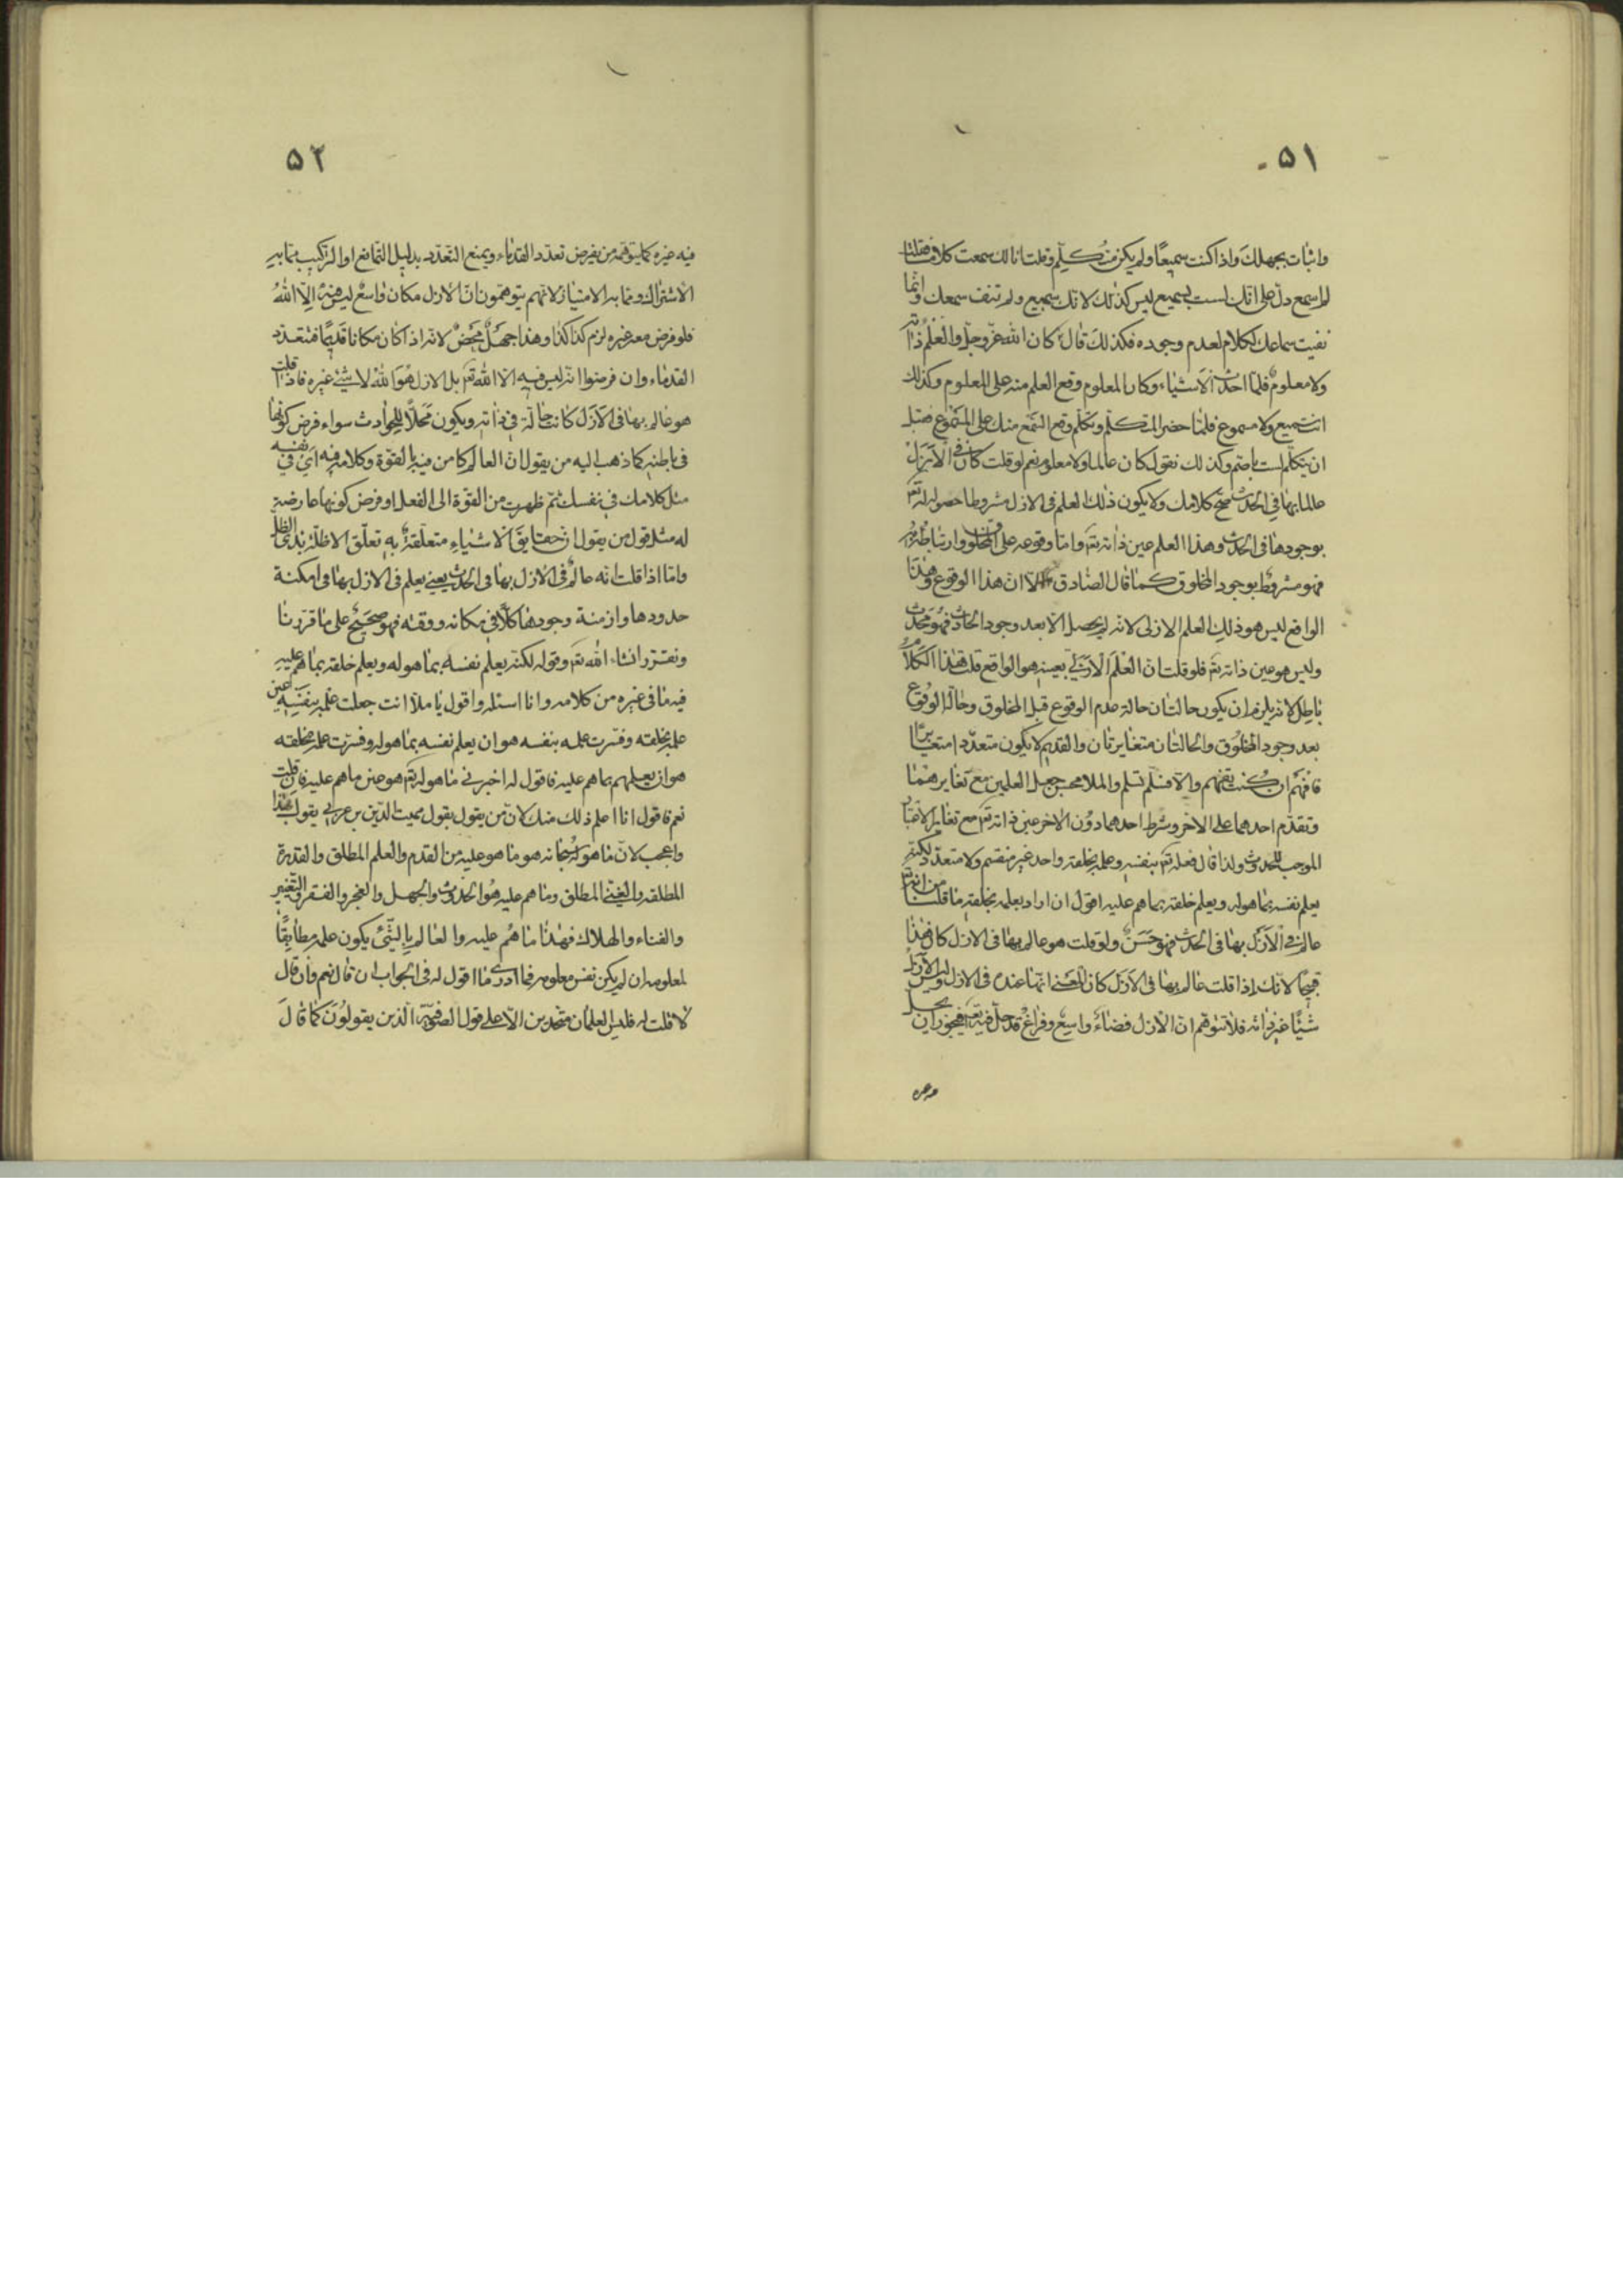 ٥١
واثبات بجهلك واذا كنت سميعًا ولم يكن متكلم وقلت انا لك سمعت كلامى فقلت
لم اسمع دل على انك لست بسميع ليس كذلك لانك سميع ولم تنف سمعك وانما
نفيت سماعك لكلام لعدم وجوده فكذلك قال كان الله عز وجل والعلم ذاته
ولا معلوم فلما احدث الاشياء وكان المعلوم وقع العلم منه على المعلوم وكذلك
انت سميع ولا مسموع فلما حضر المتكلم وتكلم وقع السمع منك على المسموع فقبل
ان يتكلم لست باصم وكذلك نقول كان عالما ولا معلوم نعم لو قلت كان فى الازل
عالما بها فى الحدث صح كلامك ولا يكون ذلك العلم فى الازل مشروطا حصوله له تع
بوجودها فى الحدث وهذا العلم عين ذاته تع واما وقوعه على المخلوق وارتباطه به
فهو مشروط بوجود المخلوق كما قال الصادق الا ان هذا الوقوع وهذا
الواقع ليس هو ذلك العلم الازلى لانه لم يحصل الا بعد وجود الحادث فهو محدث
وليس هو عين ذاته تع فلو قلت ان العلم الازلى بعينه هو الواقع قلت هذا الكلام
باطل لانه يلزم ان يكون حالتان حالة عدم الوقوع قبل المخلوق وحالة الوقوع
بعد وجود المخلوق والحالتان متغايرتان والقديم لا يكون متعددا متغايرًا
فافهم ان كنت تفهم والا فسلم تسلم والملا محسن جعل العلمين مع تغايرهما
وتقدم احدهما على الاخر وشرط احدهما دون الاخر عين ذاته تع مع تغاير الاعتبار
الموجب للحدوث ولذا قال فعلمه تع بنفسه وعلمه بخلقه واحد غير منقسم ولا متعدد لكنه
يعلم نفسه بما هو له ويعلم خلقه بما هم عليه اقول ان اراد بعلمه بخلقه ما قلنا من انه تع
عالم فى الازل بها فى الحدث فهو حسن ولو قلت هو عالم بها فى الازل كان هذا
قبيحًا لانك اذا قلت عالم بها فى الازل كان المعنى انها عنده فى الازل وليس الازل
شيئًا غير ذاته فلا تتوهم ان الازل فضاء واسع وفراغ قد حل فيه تع فيجوز ان يحل
٥٢
فيه غيره كما يتوهمه من يفرض تعدد القدماء ويمنع التعدد بدليل التمانع او التركيب مما به
الاشتراك ومما به الامتياز لانهم يتوهمون ان الازل مكان واسع ليس فيه الا الله
فلو فرض معه غيره لزم كذا كذا وهذا جهل محض لانه اذا كان مكانا قديمًا فتتعدد
القدماء وان فرضوا انه ليس فيه الا الله تع بل الازل هو الله لا شىء غيره فاذا قلت
هو عالم بها فى الازل كانت حالة فى ذاته ويكون محلًا للحوادث سواء فرض كونها
فى باطنه كما ذهب اليه من يقول ان العالم كامن فيه بالقوة وكلامه فيه اى فى نفسه
مثل كلامك فى نفسك ثم ظهرت من القوة الى الفعل او فرض كونها عارضة
له مثل قول من يقول ان حقايق الاشياء متعلقة به تعلق الاظلة بذى الظل
واما اذا قلت انه عالم فى الازل بها فى الحدث يعنى يعلم فى الازل بها فى امكنة
حدودها وازمنة وجودها كلًا فى مكانه ووقته فهو صحيح على ما قررنا
ونقرر انشاء الله تع وقوله لكنه يعلم نفسه بما هو له ويعلم خلقه بما هم عليه
فيه ما فى غيره من كلامه وانا اسئله واقول يا ملا انت جعلت علمه بنفسه عين
علمه بخلقه وفسرت علمه بنفسه هو ان يعلم نفسه بما هو له وفسرت علمه بخلقه
هو ان يعلمهم بما هم عليه فاقول له اخبرنى ما هو له تع هو عين ما هم عليه فان قلت
نعم فاقول انا اعلم ذلك منك لان من يقول بقول مميت الدين بن عربى يقول بهذا
واعجب لان ما هو له سبحانه هو ما هو عليه من القدم والعلم المطلق والقدرة
المطلقة والغنى المطلق وما هم عليه هو الحدوث والجهل والعجز والفقر والتغير
والفناء والهلاك فهذا ما هم عليه والعالم بالشىء يكون علمه مطابقًا
لمعلومه ان لم يكن نفس معلومه فما ادرى ما اقول له فى الجواب ان قال نعم وان قال
لا قلت له فليس العلمان متحدين الا على قول الصوفية الذين يقولون كما قال